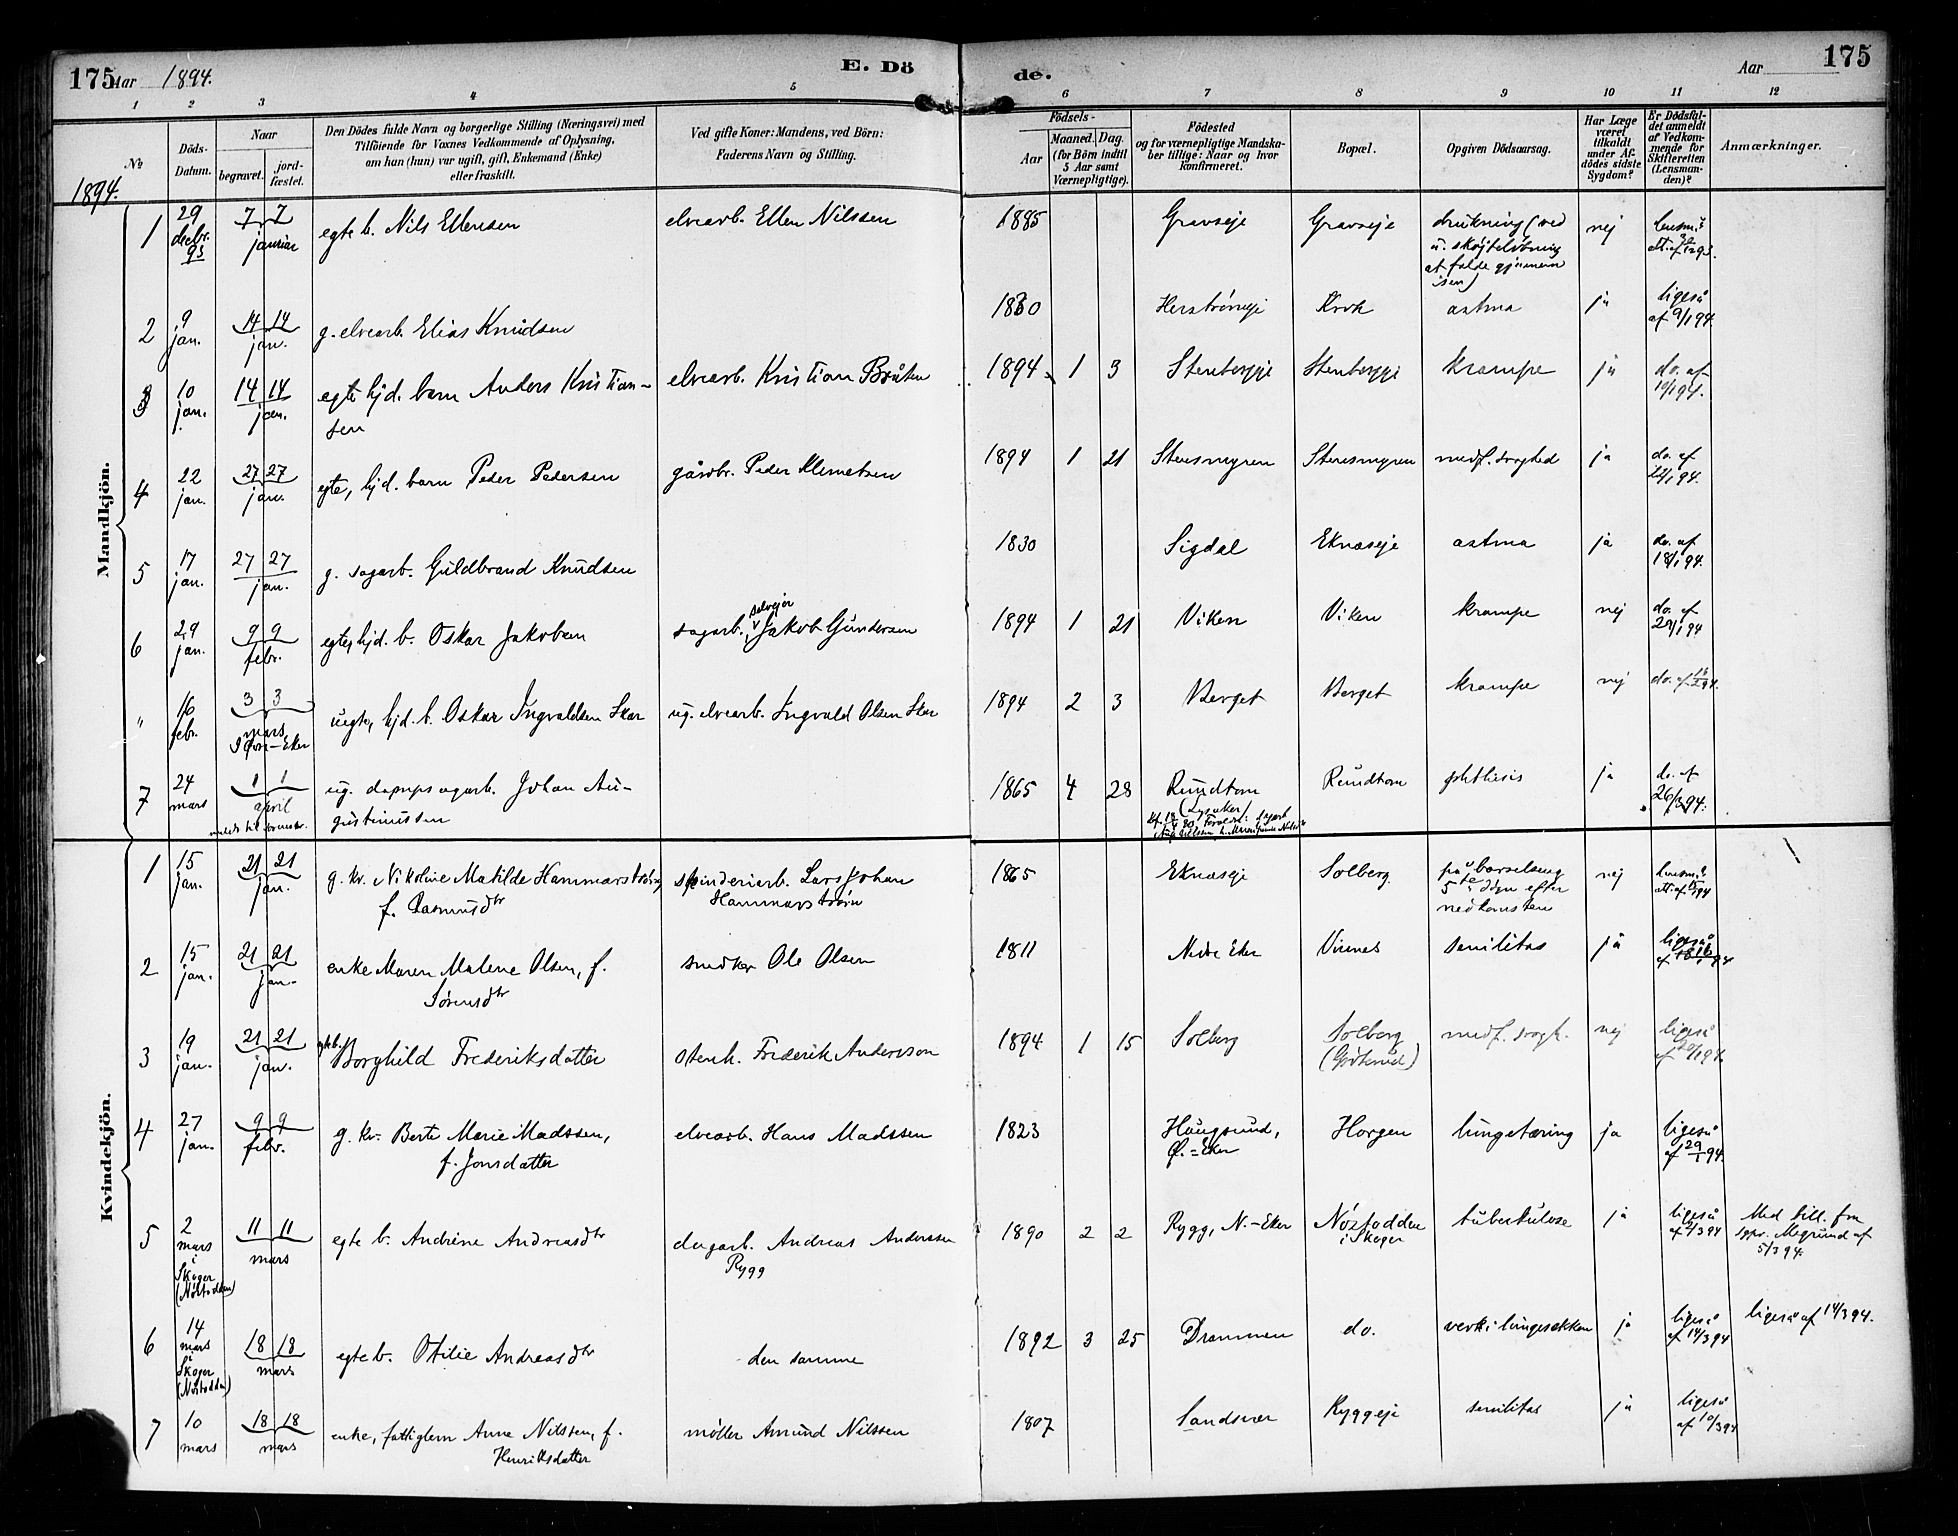 175 Aar 1894. E. Dö de. Aar 175
1 2 3 4 5 6 7 8 9 10 11 12
No
Döds-
Datum.
Naar
begravet.
jord-
fæstet.
Den Dödes fulde Navn og borgerlige Stilling (Næringsvei) med
Tilföiende for Voxnes Vedkommende af Oplysning,
om han (hun) var ugift, gift, Enkemand (Enke)
eller fraskilt.
Ved gifte Koner: Mandens, ved Börn:
Faderens Navn og Stilling.
Födsels-
Aar
Maaned.
Dag.
(for Börn indtil
5 Aar samt
Værnepligtige).
Födested
og for værnepligtige Mandska-
ber tillige: Naar og hvor
konfirmeret.
Bopæl.
Opgiven Dödsaarsag.
Har Læge
været
tilkaldt
under Af-
dödes sidste
Sygdom?
Er Dödsfal-
det anmeldt
af Vedkom-
mende for
Skifteretten
(Lensman-
den)?
Anmærkninger.
1894.
Mandkjön.
1 29 decbr. 93 7 7 januar egte b. Nils Ellensen elvearb. Ellen Nilssen 1885 Gravseje Gravseje drukning (ved
u. skøjteløbning
at falde gjennem
isen) nej
2 9 jan. 14 14 jan. g. elvearb. Elias Knudsen 1830 Krok astma ja ligeså
af 9/1 94.
3 10 jan. 14 14 jan. egte hjd. barn Anders Kristian-
sen elvearb. Kristian Bråten 1894 1 3 Stenbergeje Stenbergeje krampe ja do. af
10/1 94.
4 22 jan. 27 27 jan. egte, hjd. barn Peder Pedersen gårdbr. Peder Klemetsen 1894 1 21 Stensmyren Stensmyren medf. svaghed ja do. af
22/1 94.
5 17 jan. 27 27 jan. g. sagarb. Guldbrand Knudsen 1830 Sigdal Eknæseje astma ja do. af
18/1 94.
6 29 jan. 9 9 febr. egte, hjd. b. Oskar Jakobsen sagarb., selvejer Jakob Gundersen 1894 1 21 Viken Viken krampe nej do. af
29/1 94
" 16 febr. 3 3 mars
i Øvre-Eker uegte, hjd. b. Oskar Ingvaldsen Skar ug. elvearb. Ingvald Olsen Skar 1894 2 3 Berget Berget krampe nej do. af
7 24 mars 1 1 april ug. dampsagarb. Johan Au-
gustinussen 1865 4 28 Rundtom
(Lysaker) Rundtom phthisis ja do. af
26/3 94.
Kvindekjön.
1 15 jan. 21 21 jan. g. kv. Nikoline Matilde Hammarstrøm,
f. Rasmusdtr spinderiarb. Lars Johan
Hammarstrøm 1865 Eknæseje Solberg på barselseng
5te dagen efter
nedkomsten nej
2 15 jan. 21 21 jan. enke Maren Malene Olsen, f.
Sørensdtr snedker Ole Olsen 1811 Nedre Eker Vinnes senilitas ja ligeså
3 19 jan. 21 21 jan. egte b. Borghild Frederiksdatter stenh. Frederik Andersson 1894 1 15 Solberg Solberg
medf. svagh. nej ligeså
af 20/1 94.
4 27 jan. 9 9 febr. g. kv. Berte Marie Madssen,
f. Jonsdatter elvearb. Hans Madssen 1823 Haugsund,
Ø.=Eker Horgen lungetæring ja ligeså
af 29/1 94.
5 2 mars
i
Skoger 11 11 mars egte b. Andrine Andreasdtr dagarb. Andreas Anderssen
Rygg 1890 2 2 Rygg, N.-Eker Nøstodden
i Skoger tuberkulose ja ligeså
af 2/3 94 Med bill. fra
sgpr. af
5/3 94.
6 14 mars
i
Skoger
(Nøstodden) 18 18 mars egte b. Otilie Andreasdtr den samme 1892 3 25 Drammen do. verk i lungesækken ja ligeså
af 14/3 94 ligeså af 14/3 94.
7 10 mars 18 18 mars enke, fattiglem Anne Nilssen, f.
Henriksdatter møller Amund Nilssen 1807 Sandsvær Ryggeje senilitas ja ligeså
af 10/3 94